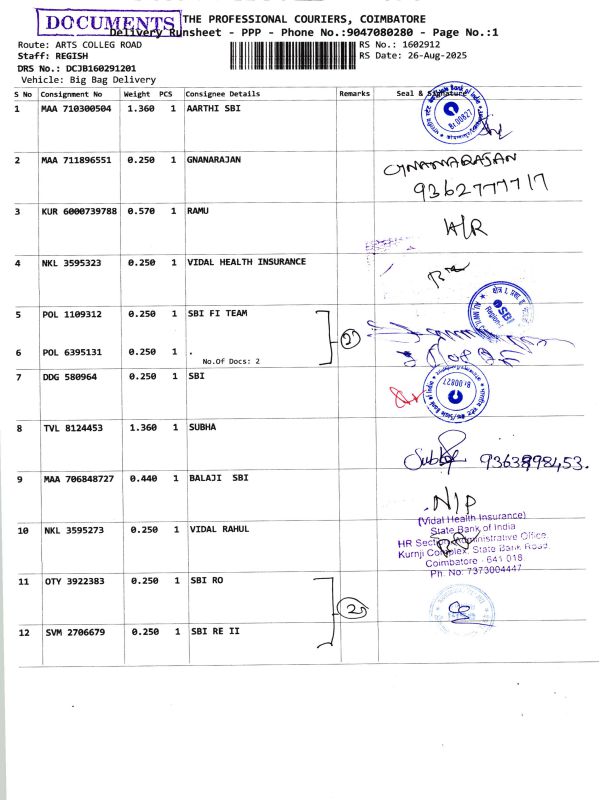 DOCUMENTS
THE PROFESSIONAL COURIERS, COIMBATORE
Delivery Runsheet - PPP - Phone No.:9047080280 - Page No.:1
Route: ARTS COLLEG ROAD
RS No.: 1602912
Staff: REGISH
RS Date: 26-Aug-2025
DRS No.: DCJB160291201
Vehicle: Big Bag Delivery
S No Consignment No Weight PCS Consignee Details Remarks Seal & Signature
1 MAA 710300504 1.360 1 AARTHI SBI
Br.00827
2 MAA 711896551 0.250 1 GNANARAJAN
GNANARAJAN
9362777717
3 KUR 6000739788 0.570 1 RAMU
4 NKL 3595323 0.250 1 VIDAL HEALTH INSURANCE
5 POL 1109312 0.250 1 SBI FI TEAM
SBI
6 POL 6395131 0.250 1 .
No.Of Docs: 2
7 DDG 580964 0.250 1 SBI
Br.00827
State Bank of India
8 TVL 8124453 1.360 1 SUBHA
9363898453.
9 MAA 706848727 0.440 1 BALAJI SBI
10 NKL 3595273 0.250 1 VIDAL RAHUL
(Vidal Health Insurance)
State Bank of India
HR Section, Administrative Office,
Kurnji Complex, State Bank Road,
Coimbatore - 641 018.
Ph. No: 7373004447
11 OTY 3922383 0.250 1 SBI RO
12 SVM 2706679 0.250 1 SBI RE II